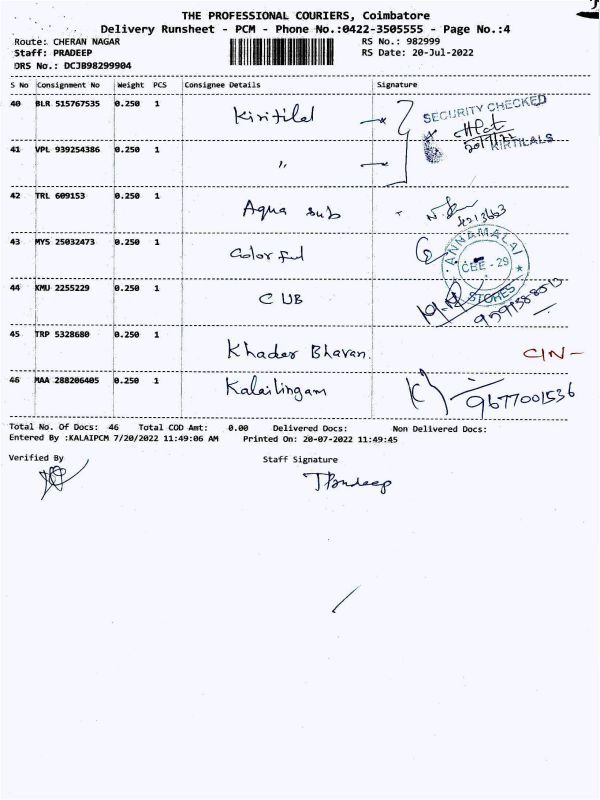 THE PROFESSIONAL COURIERS, Coimbatore
Delivery Runsheet - PCM - Phone No.:0422-3505555 - Page No.:4
Route: CHERAN NAGAR RS No.: 982999
Staff: PRADEEP RS Date: 20-Jul-2022
DRS No.: DCJB98299904
S No Consignment No Weight PCS Consignee Details Signature
40 BLR 515767535 0.250 1 Kiritilal
SECURITY CHECKED
KIRTILALS
41 VPL 939254386 0.250 1 "
42 TRL 609153 0.250 1 Aqua sub
43 MYS 25032473 0.250 1 Colorful
ANNAMALAI
CBE - 29
STORES
44 KMU 2255229 0.250 1 CUB
45 TRP 5328680 0.250 1 Khader Bhavan. CIN-
46 MAA 288206405 0.250 1 Kalailingam 9677001536
Total No. Of Docs: 46 Total COD Amt: 0.00 Delivered Docs: Non Delivered Docs:
Entered By :KALAIPCM 7/20/2022 11:49:06 AM Printed On: 20-07-2022 11:49:45
Verified By Staff Signature